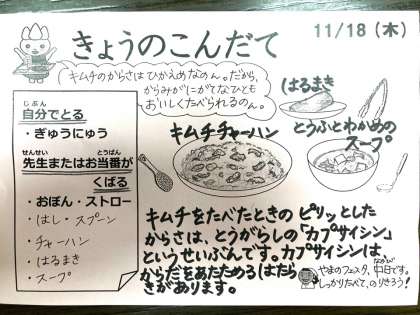 きょうのこんだて
11/18(木)
キムチのからさはひかえめなのん。だから、
からみがにがてなひとも
おいしくたべられるのん。
はるまき
キムチチャーハン
とうふとわかめの
スープ
じぶん
自分でとる
・ぎゅうにゅう
せんせい とうばん
先生またはお当番が
くばる
・おぼん・ストロー
・はし・スプーン
・チャーハン
・はるまき
・スープ
キムチをたべたときの ピリッとした
からさは、とうがらしの「カプサイシン」
というせいぶんです。カプサイシンは、
からだをあたためるはたら
きがあります。
やまのフェスタ、中日です。
しっかりたべて、のりきろう!